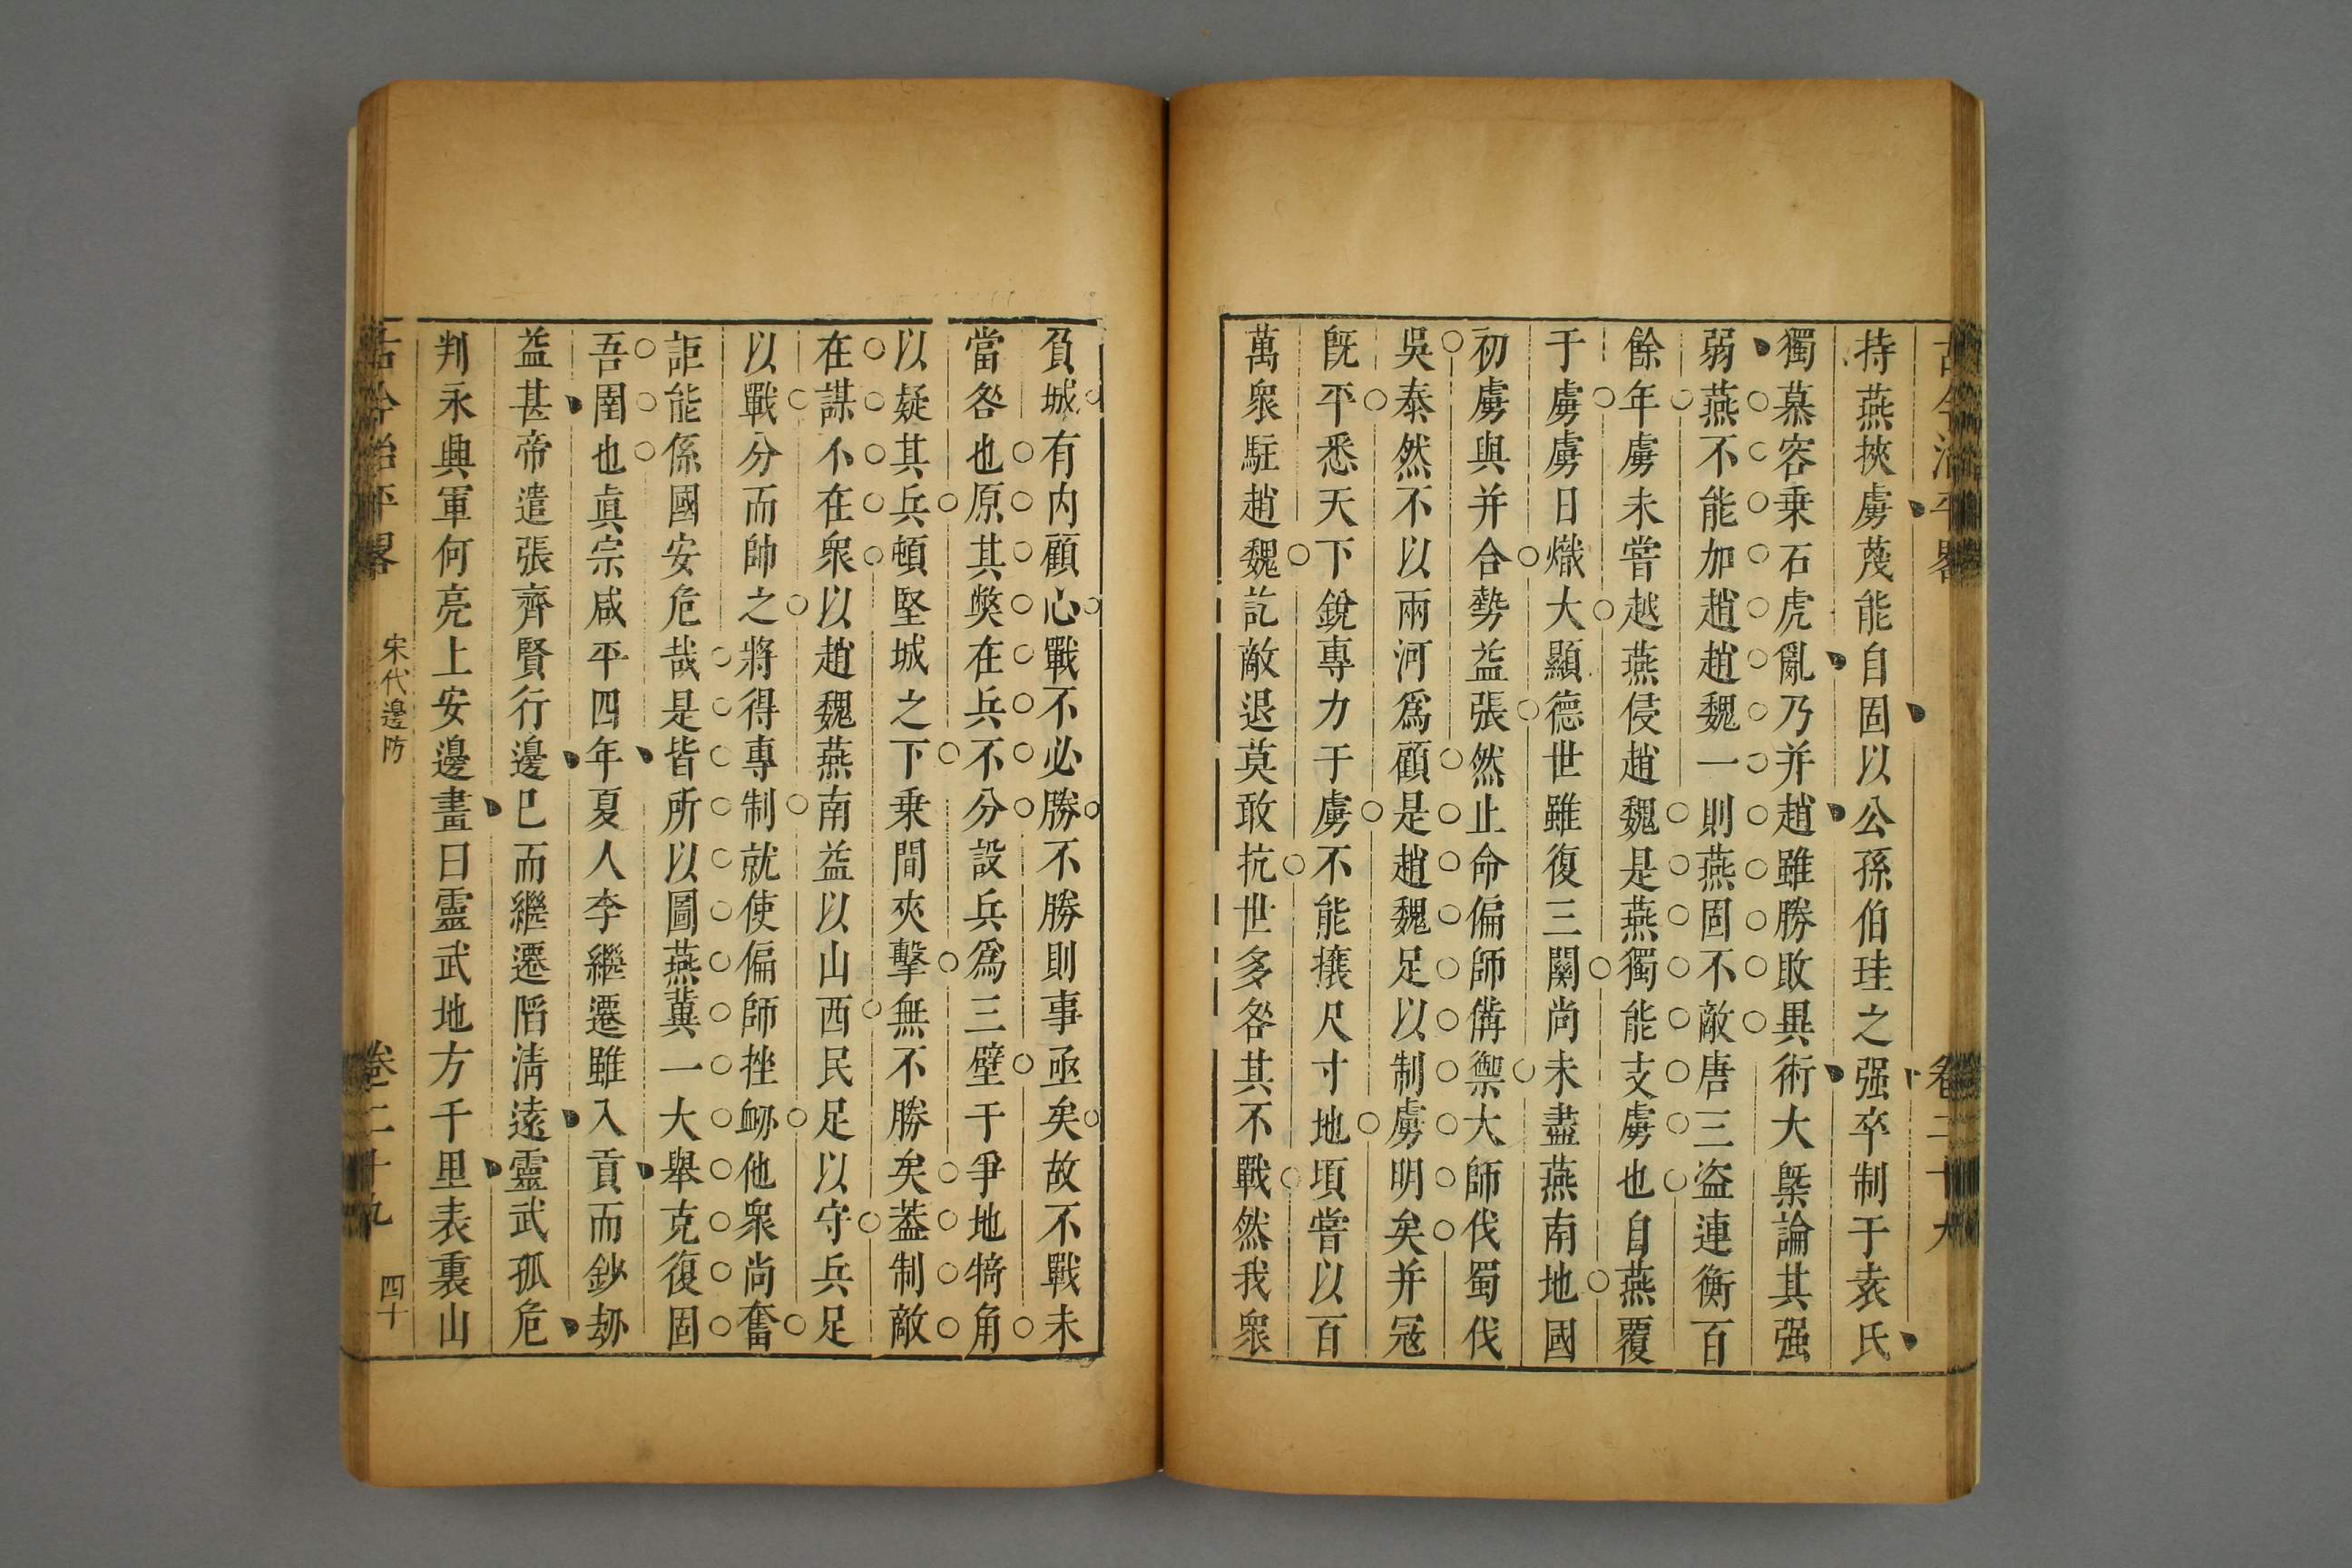 古今治平畧
卷二十九
持燕挾虜蔑能自固以公孫伯珪之强卒制于袁氏
獨慕容乗石虎亂乃并趙雖勝敗異術大槩論其强
弱燕不能加趙趙魏一則燕固不敵唐三盗連衡百
餘年虜未嘗越燕侵趙魏是燕獨能支虜也自燕覆
于虜虜日熾大顯德世雖復三關尚未盡燕南地國
初虜與并合勢益張然止命偏師備禦大師伐蜀伐
吳泰然不以兩河爲顧是趙魏足以制虜明矣并冦
旣平悉天下銳專力于虜不能攘尺寸地頃嘗以百
萬衆駐趙魏訖敵退莫敢抗世多咎其不戰然我衆
負城有内顧心戰不必勝不勝則事亟矣故不戰未
當咎也原其獘在兵不分設兵爲三壁于爭地犄角
以疑其兵頓堅城之下乗間夾擊無不勝矣葢制敵
在謀不在衆以趙魏燕南益以山西民足以守兵足
以戰分而帥之將得專制就使偏師挫衂他衆尚奮
詎能係國安危哉是皆所以圖燕冀一大舉克復固
吾圉也眞宗咸平四年夏人李繼遷雖入貢而鈔刼
益甚帝遣張齊賢行邊巳而繼遷䧟淸遠靈武孤危
判永興軍何亮上安邊畫曰靈武地方千里表裏山
古今治平畧
宋代邊防
卷二十九
四十